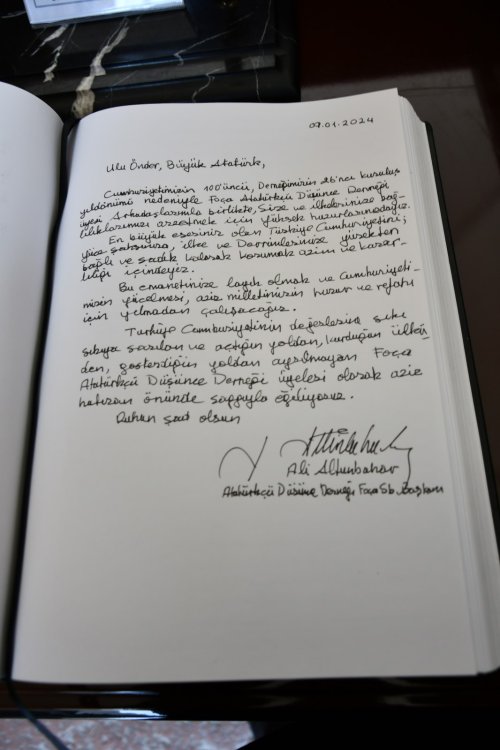 09.01.2024
Ulu Önder, Büyük Atatürk,
Cumhuriyetimizin 100'üncü, Derneğimizin 26'ncı kuruluş
yıldönümü nedeniyle Foça Atatürkçü Düşünce Derneği
üyesi Arkadaşlarımla birlikte, Size ve ilkelerinize bağ-
lılıklarımızı arzetmek için yüksek huzurlarınızdayız.
En büyük eseriniz olan Türkiye Cumhuriyetini,
yüce şahsınıza, ilke ve Devrimlerinize yürekten
bağlı ve sadık kalarak korumak azim ve karar-
lılığı içindeyiz.
Bu emanetinize layık olmak ve Cumhuriyeti-
mizin yücelmesi, aziz milletimizin huzur ve refahı
için yılmadan çalışacağız.
Türkiye Cumhuriyetinin değerlerine sıkı
sıkıya sarılan ve açtığın yoldan, kurduğun ülkü-
den, gösterdiğin yoldan ayrılmayan Foça
Atatürkçü Düşünce Derneği üyeleri olarak aziz
hatıran önünde saygıyla eğiliyoruz.
Ruhun şad olsun
Ali Altunbahar
Atatürkçü Düşünce Derneği Foça Şb. Başkanı